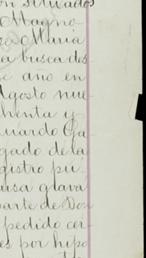 on situados
Magno
Maria
a busca des
e ano en
Agosto nue
henta y
uardo Ga
gado de la
gistro pú
ausa grava
parte de Don
pedido cer
es por hipo